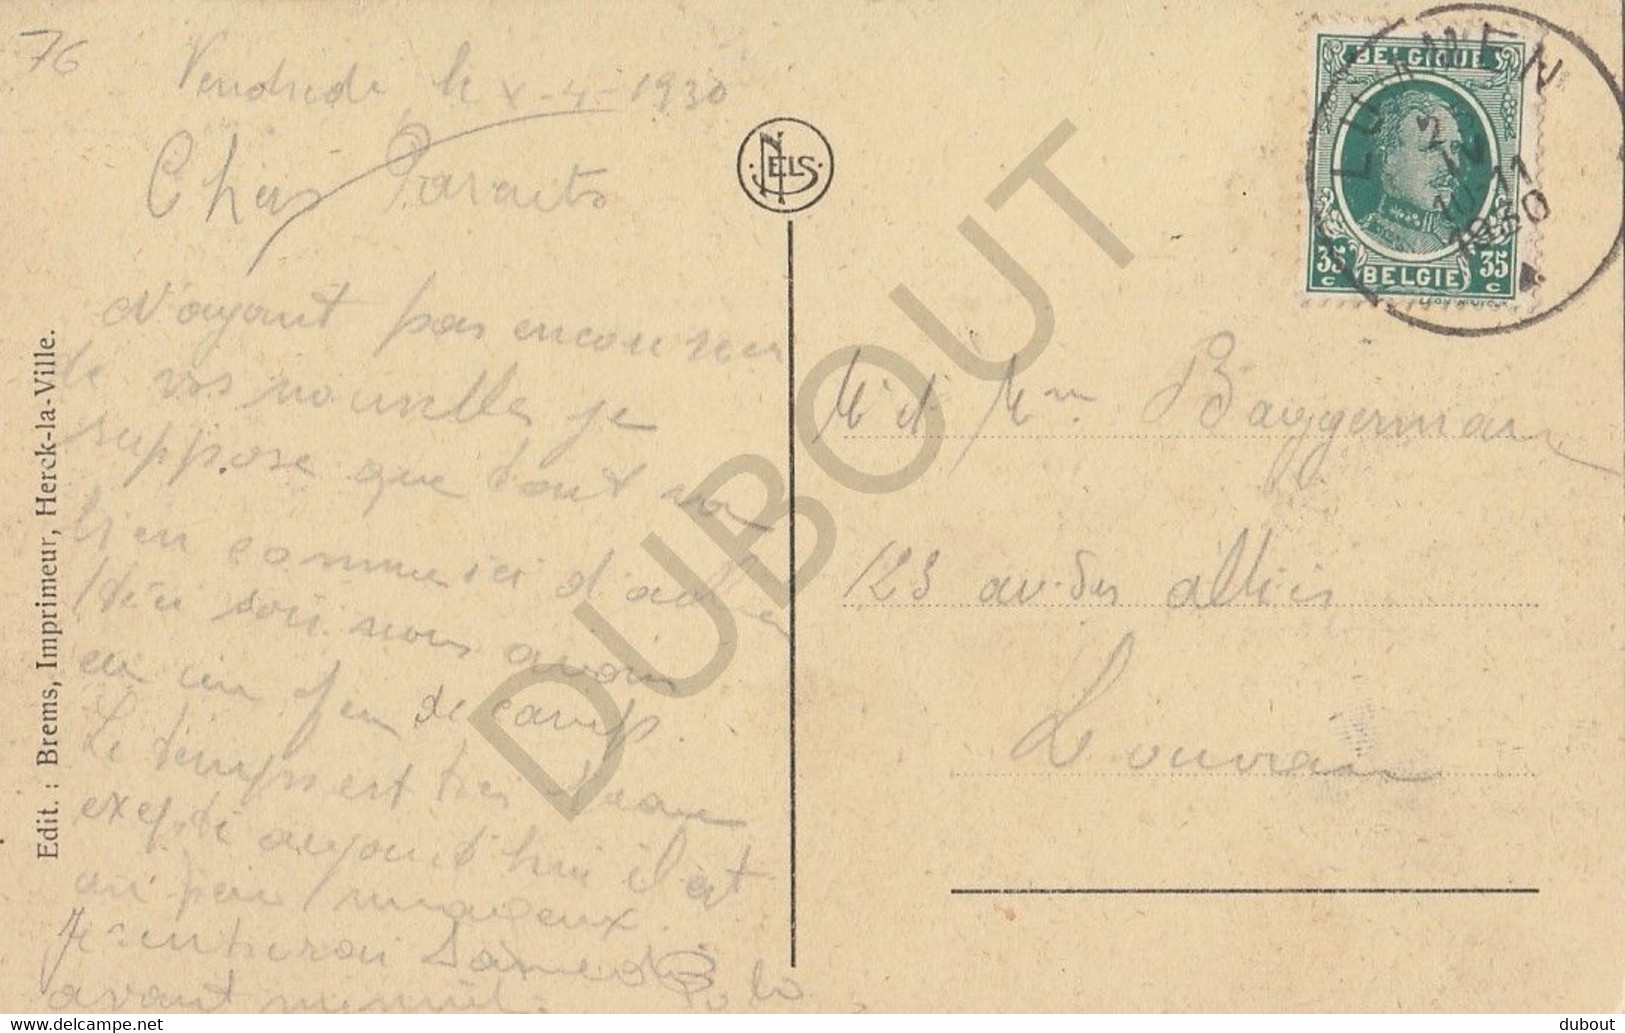 76
Vendredi le x-4-1930
Chers Parents
N'ayant pas encore reçu
de vos nouvelles je
suppose que tout va
bien
Hier soir nous avons
eu un feu de camp.
Le temps est très beau
excepté aujourd'hui il est
un peu nuageux.
Je rentrerai Samedi
avant minuit.
Bo bo
Edit. : Brems, Imprimeur, Herck-la-Ville.
NELS
BELGIQUE
35 c BELGIE 35 c
LUMMEN
1930
Mr et Mme Baggerman
123 av. des alliés
Louvain
DUBOUT
dubout